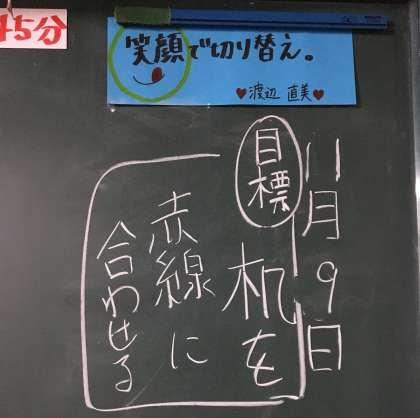 45分
笑顔で切り替え。
♥渡辺 直美♥
11月9日
目標
机を
赤線に
合わせる